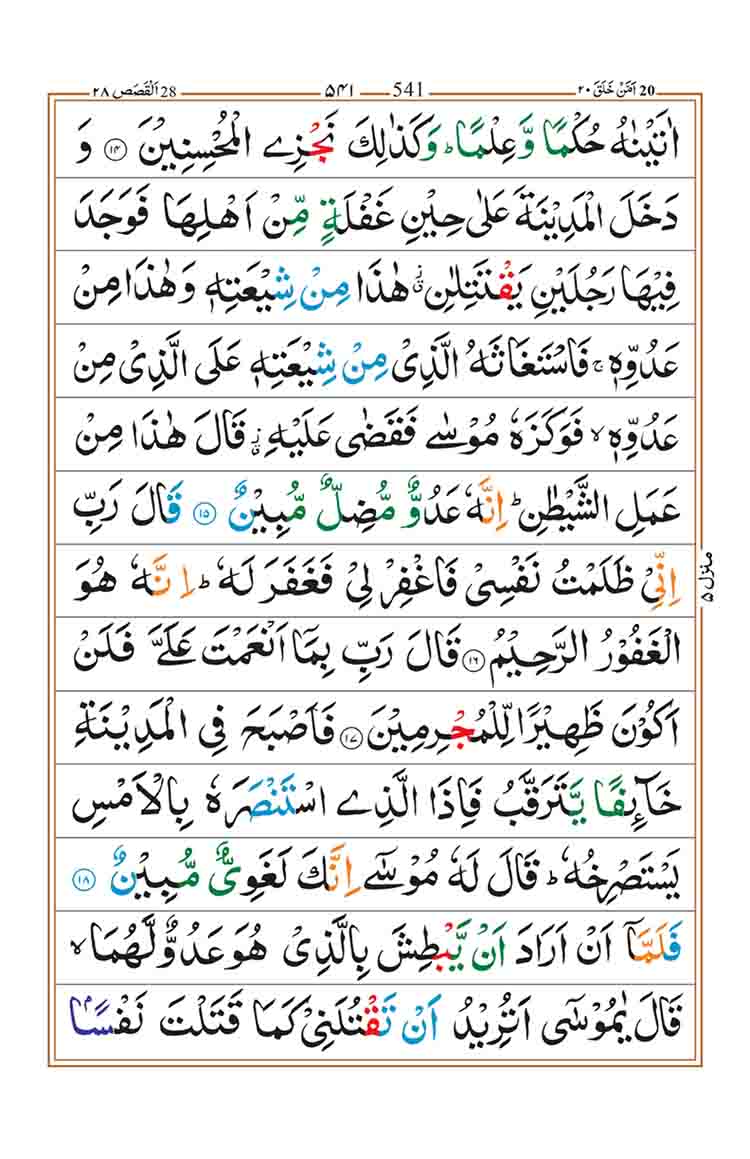 20 اَمَّنْ خَلَقَ ۲۰ 541 ۵۴۱ 28 اَلْقَصَص ۲۸
اٰتَيْنٰهُ حُكْمًا وَّعِلْمًا ؕ وَكَذٰلِكَ نَجْزِى الْمُحْسِنِيْنَ ۱۴ وَ
دَخَلَ الْمَدِيْنَةَ عَلٰى حِيْنِ غَفْلَةٍ مِّنْ اَهْلِهَا فَوَجَدَ
فِيْهَا رَجُلَيْنِ يَقْتَتِلٰنِ ۫ ۗ هٰذَا مِنْ شِيْعَتِهٖ وَهٰذَا مِنْ
عَدُوِّهٖ ۚ فَاسْتَغَاثَهُ الَّذِىْ مِنْ شِيْعَتِهٖ عَلَى الَّذِىْ مِنْ
عَدُوِّهٖ ۙ فَوَكَزَهٗ مُوْسٰى فَقَضٰى عَلَيْهِ ۫ ۗ قَالَ هٰذَا مِنْ
عَمَلِ الشَّيْطٰنِ ؕ اِنَّهٗ عَدُوٌّ مُّضِلٌّ مُّبِيْنٌ ۱۵ قَالَ رَبِّ
اِنِّىْ ظَلَمْتُ نَفْسِىْ فَاغْفِرْ لِىْ فَغَفَرَ لَهٗ ؕ اِنَّهٗ هُوَ
الْغَفُوْرُ الرَّحِيْمُ ۱۶ قَالَ رَبِّ بِمَاۤ اَنْعَمْتَ عَلَىَّ فَلَنْ
اَكُوْنَ ظَهِيْرًا لِّلْمُجْرِمِيْنَ ۱۷ فَاَصْبَحَ فِى الْمَدِيْنَةِ
خَآئِفًا يَّتَرَقَّبُ فَاِذَا الَّذِى اسْتَنْصَرَهٗ بِالْاَمْسِ
يَسْتَصْرِخُهٗ ؕ قَالَ لَهٗ مُوْسٰٓى اِنَّكَ لَغَوِىٌّ مُّبِيْنٌ ۱۸
فَلَمَّاۤ اَنْ اَرَادَ اَنْ يَّبْطِشَ بِالَّذِىْ هُوَ عَدُوٌّ لَّهُمَا ۙ
قَالَ يٰمُوْسٰٓى اَتُرِيْدُ اَنْ تَقْتُلَنِىْ كَمَا قَتَلْتَ نَفْسًاۢ
منزل ۵